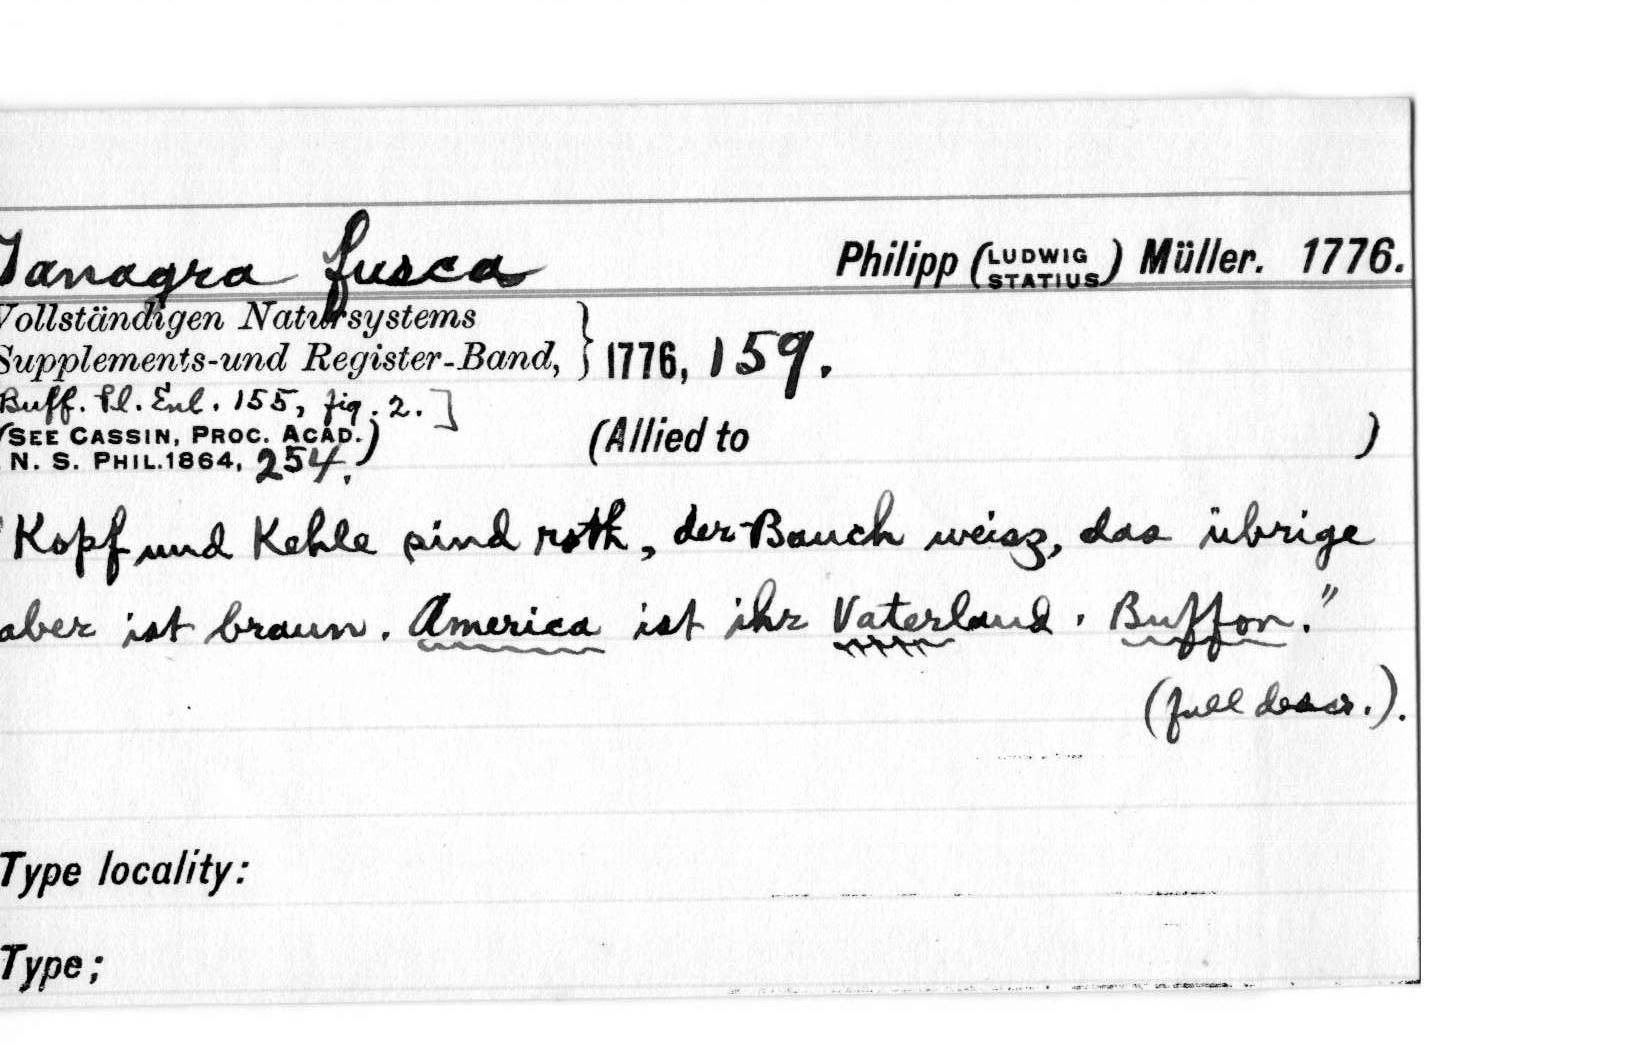 Tanagra fusca Philipp (LUDWIG STATIUS) Müller. 1776.
Vollständigen Natursystems
Supplements-und Register-Band, } 1776, 159.
Buff. Pl. Enl. 155, fig. 2.]
(SEE CASSIN, PROC. ACAD.) (Allied to )
N. S. PHIL. 1864, 254.
"Kopf und Kehle sind roth, der Bauch weisz, das übrige
aber ist braun. America ist ihr Vaterland. Buffon."
(full descr.).
Type locality:
Type;